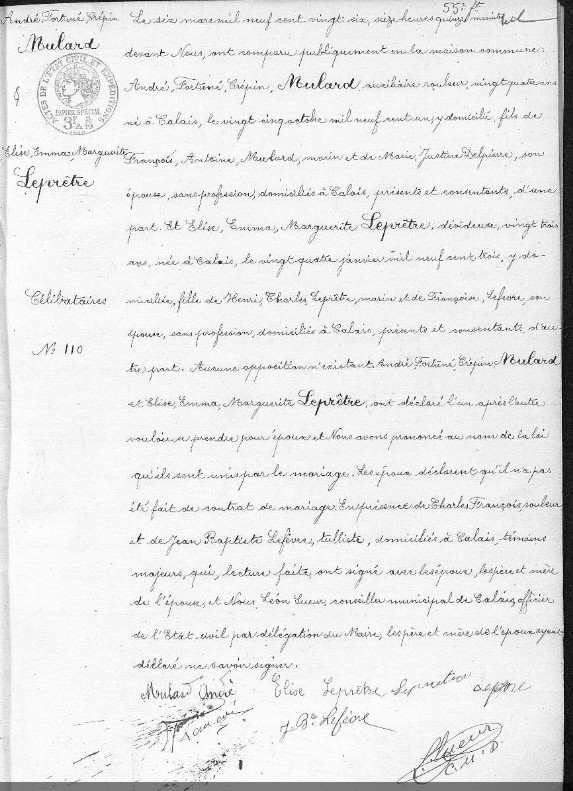 55
André Fortuné Crépin
Mulard
&
Elise, Emma, Marguerite
Leprêtre
Célibataires
N° 110
ACTES DE L'ETAT CIVIL ET EXPÉDITIONS
PAPIER SPÉCIAL
Le six mars mil neuf cent vingt six, seize heures quinze minutes
devant Nous, ont comparu publiquement en la maison commune:
André, Fortuné, Crépin, Mulard, auxiliaire rouleur, vingt quatre ans
né à Calais, le vingt cinq octobre mil neuf cent un, y domicilié, fils de
François, Antoine, Mulard, marin et de Marie, Justine Delpierre, son
épouse, sans profession, domiciliés à Calais, présents et consentants, d'une
part. Et Elise, Emma, Marguerite Leprêtre, dévideuse, vingt trois
ans, née à Calais, le vingt quatre janvier mil neuf cent trois, y do-
miciliée, fille de Henri, Charles, Leprêtre, marin et de Françoise, Lefevre, son
épouse, sans profession, domiciliés à Calais, présents et consentants, d'au-
tre part. Aucune opposition n'existant. André Fortuné, Crépin, Mulard
et Elise, Emma, Marguerite Leprêtre, ont déclaré l'un après l'autre
vouloir se prendre pour époux et Nous avons prononcé au nom de la loi
qu'ils sont unis par le mariage. Les époux déclarent qu'il n'a pas
été fait de contrat de mariage. En présence de Charles François, rouleur
et de Jean Baptiste Lefèvre, tulliste, domiciliés à Calais, témoins
majeurs, qui, lecture faite, ont signé avec les époux, les père et mère
de l'épouse, et Nous Léon Cueur, conseiller municipal de Calais, officier
de l'Etat civil par délégation du Maire, les père et mère de l'époux ayant
déclaré ne savoir signer.
Mulard André Elise Leprêtre Lepretre
François J Bte Lefèvre
L Cueur
C.M.D.